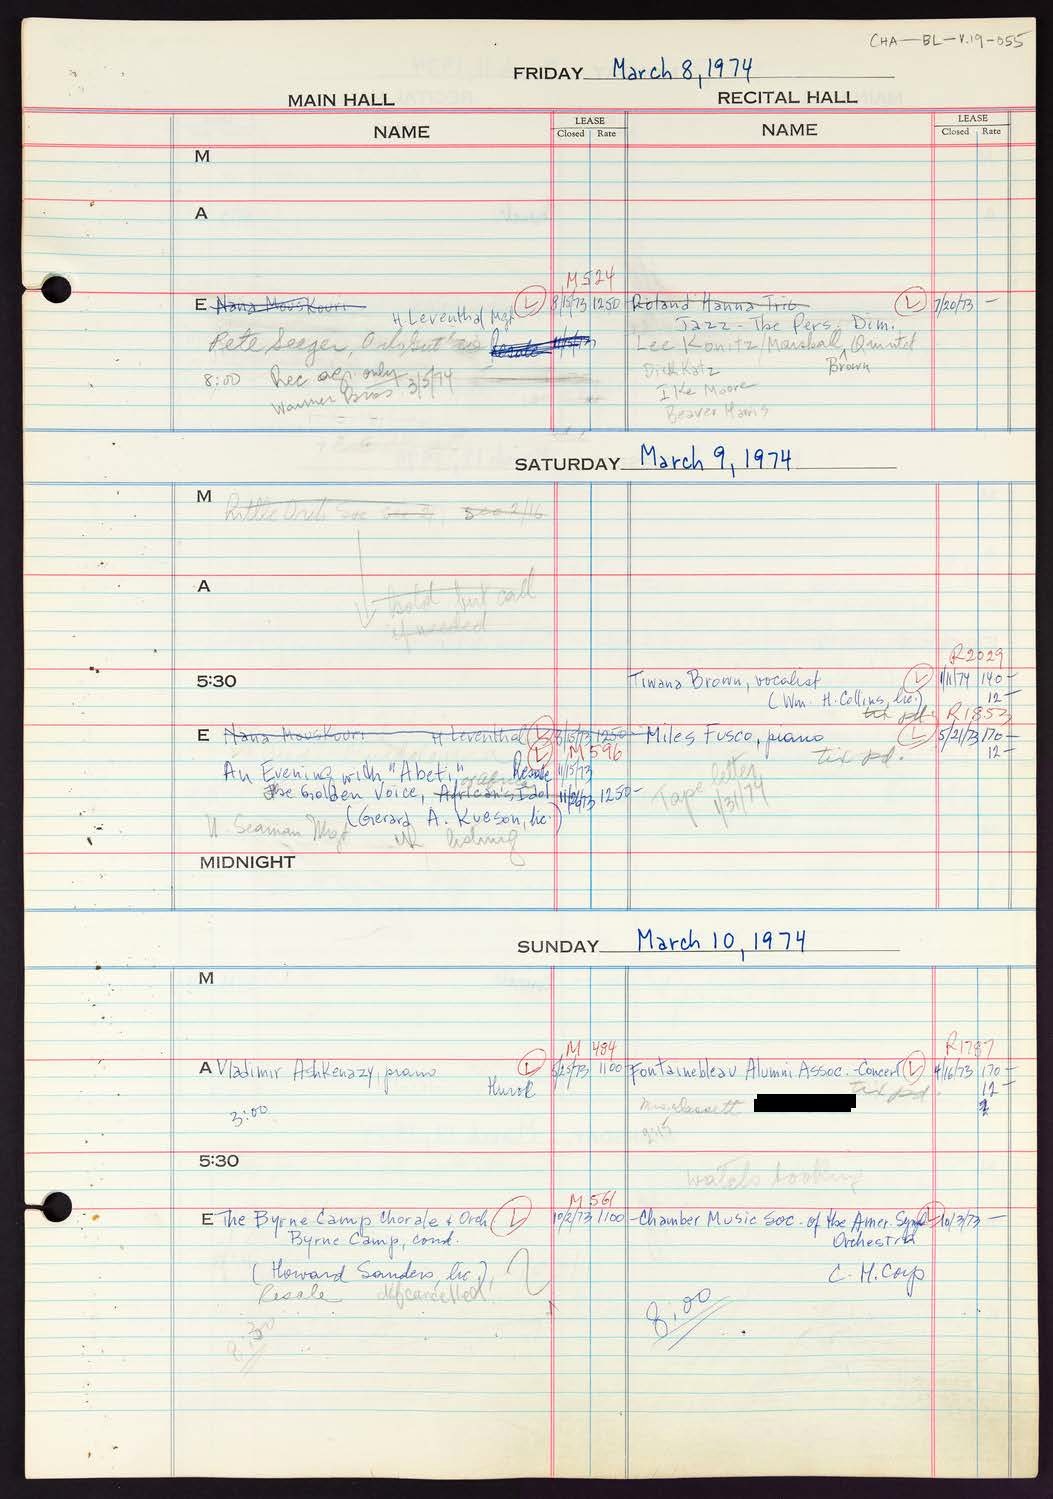 CHA-BL-V.19-055
FRIDAY March 8, 1974
MAIN HALL RECITAL HALL
NAME LEASE Closed Rate NAME LEASE Closed Rate
M
A
M 524
E Nana Mouskouri L 8/15/73 1250 Roland Hanna Trio L 7/20/73 -
H Leventhal Mgt Jazz - The Pers. Dim.
Pete Seeger, Resale 11/15/73 Lee Konitz/Marshall Brown Quintet
8:00 Rec agr. only 3/5/74 Dick Katz
Warner Bros Ike Moore
Beaver Harris
SATURDAY March 9, 1974
M Little Orch Soc see 2/16
A hold but call
if needed
R2029
5:30 Tiwana Brown, vocalist L 1/11/74 140-
(Wm. H. Collins, Inc.) 12-
tix pd. R1853
E Nana Mouskouri H Leventhal L 8/15/73 1250- Miles Fusco, piano L 5/21/73 170-
L M 596 tix pd. 12-
An Evening with "Abeti," Resale 11/15/73
The Golden Voice, African's Idol 11/26/73 1250- Tape letter
(Gerard A. Kueson, Inc.) 1/31/74
N. Seaman Mgt listing
MIDNIGHT
SUNDAY March 10, 1974
M
M 494 R1787
A Vladimir Ashkenazy, piano L 5/25/73 1100 Fontainebleau Alumni Assoc.-Concert L 4/16/73 170-
Hurok tix pd. 12-
3:00 Mrs. Bassett
2:15
5:30 watch booking
M 561
E The Byrne Camp Chorale & Orch L 10/2/73 1100- Chamber Music Soc. of the Amer. Symp L 10/3/73 -
Byrne Camp, cond. Orchestra
(Howard Sanders, Inc.), C.M.Corp
Resale cancelled
8:30 8:00